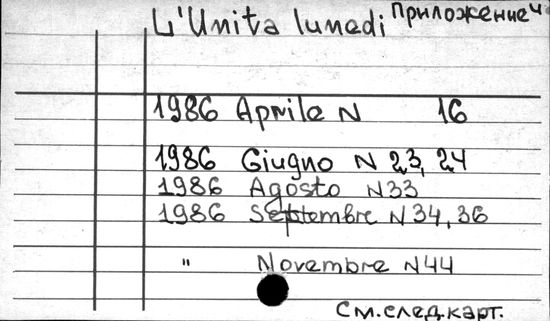 L'Unita lunedi приложение
1986 Aprile N 16
1986 Giugno N 23, 24
1986 Agosto N33
1986 Septembre N34, 36
" Novembre N44
См.след.карт.